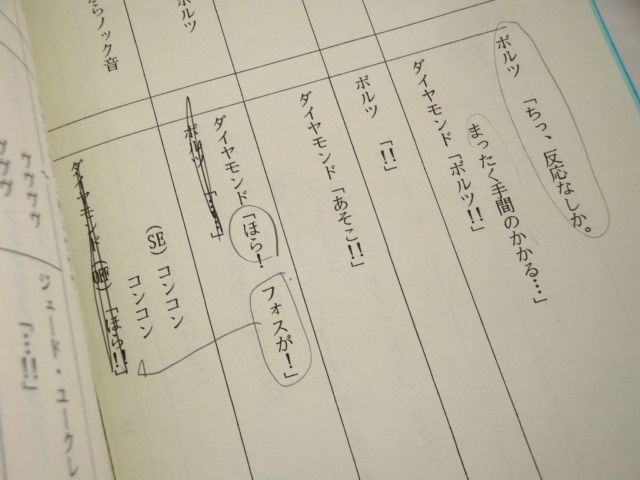 ボルツ 「ちっ、反応なしか。
まったく手間のかかる…」
ダイヤモンド「ボルツ!!」
ボルツ 「!!」
ダイヤモンド「あそこ!!」
ダイヤモンド「ほら! フォスが!」
ボルツ 「…!!」
(SE)コンコン
コンコン
ダイヤモンド (OFF)「ほら!!」
ボルツ
らノック音
ウウウウ
ウウウ
ジェード・ユークレ
「…!!」